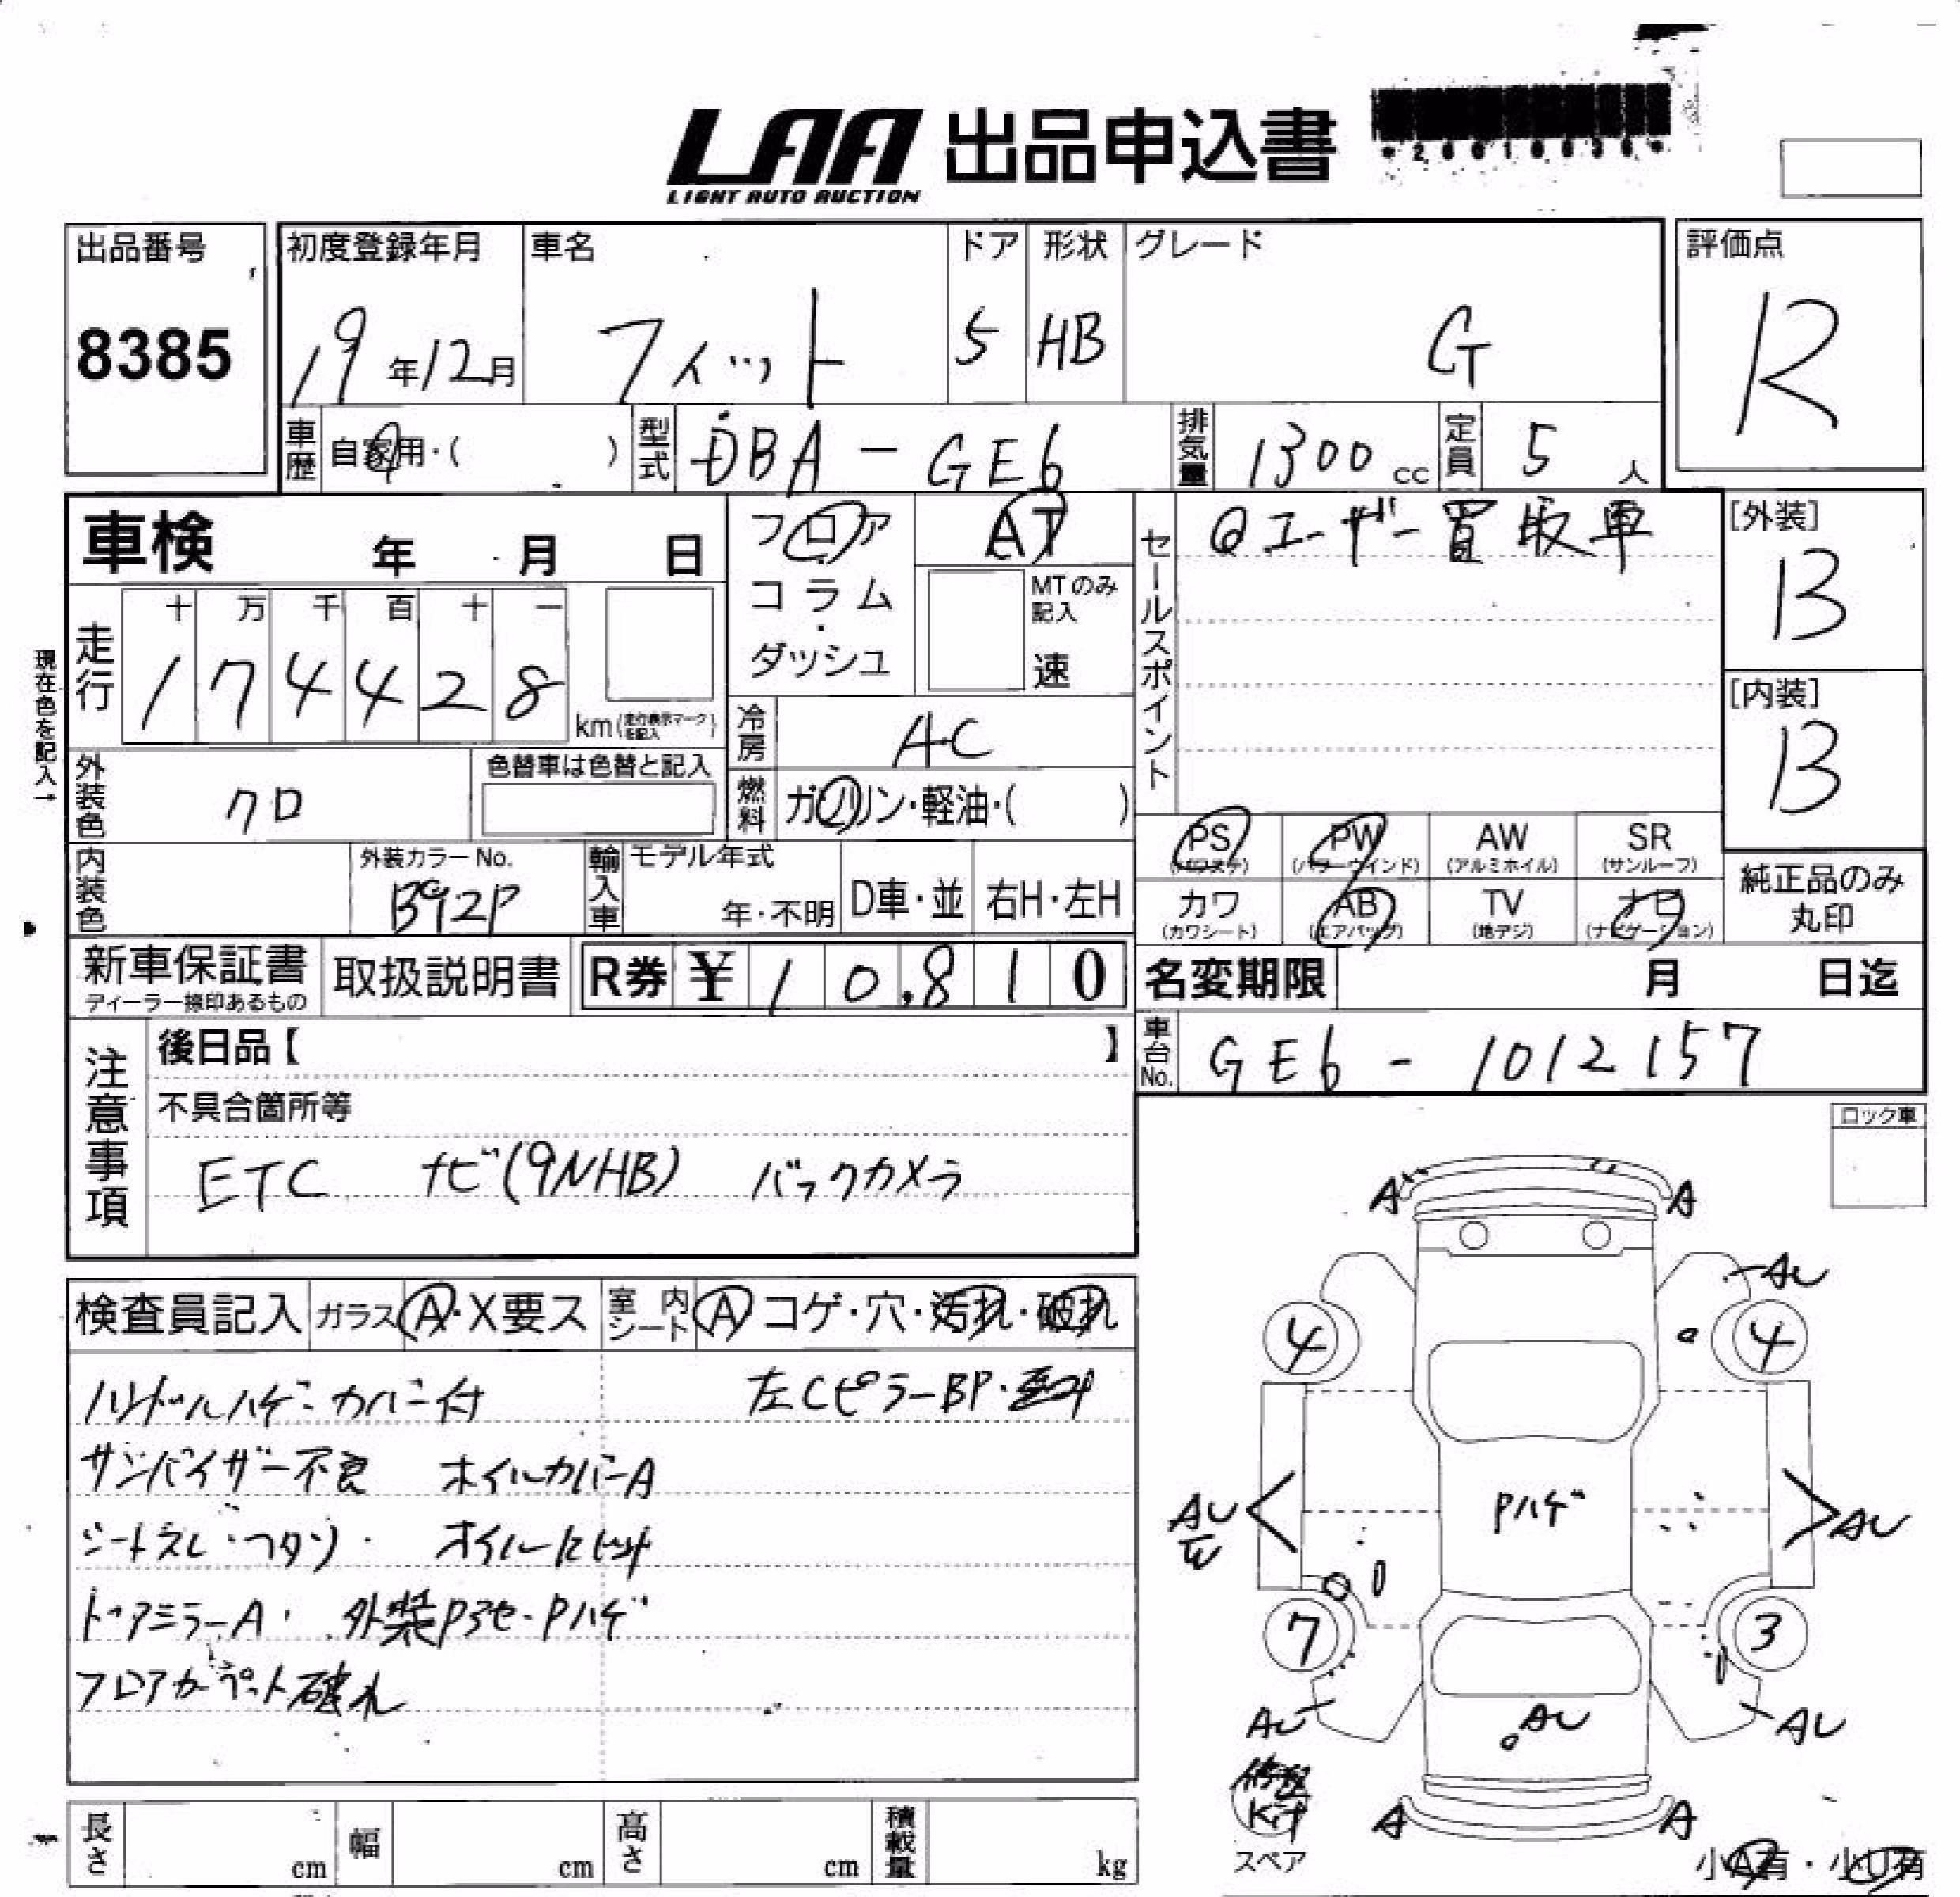 LAA 出品申込書
LIGHT AUTO AUCTION
出品番号
8385
初度登録年月
19年12月
車名
フィット
ドア
5
形状
HB
グレード
G
評価点
R
車歴
自家用・( )
型式
DBA-GE6
排気量
1300 cc
定員
5 人
車検 年 月 日
フロア
コラム
・
ダッシュ
AT
MTのみ
記入
速
セールスポイント
@ユーザー買取車
[外装]
B
[内装]
B
現在色を記入→
走行
十 万 千 百 十 一
1 7 4 4 2 8
km(走行表示マークを記入)
冷房
AC
燃料
ガソリン・軽油・( )
外装色
クロ
色替車は色替と記入
内装色
外装カラーNo.
B92P
輸入車
モデル年式
年・不明
D車・並
右H・左H
PS
(パワステ)
PW
(パワーウインド)
AW
(アルミホイル)
SR
(サンルーフ)
カワ
(カワシート)
AB
(エアバッグ)
TV
(地デジ)
ナビ
(ナビゲーション)
純正品のみ
丸印
新車保証書
ディーラー捺印あるもの
取扱説明書
R券 ¥ 10,810
名変期限 月 日迄
車台No.
GE6-1012157
注意事項
後日品【 】
不具合箇所等
ETC ナビ(9NHB) バックカメラ
ロック車
検査員記入
ガラス A・X要ス
室内シート A コゲ・穴・汚れ・破れ
ハンドルハゲ・カバー付 左CピラーBP・
サンバイザー不良 ホイルカバーA
シートスレ・フタソ・ オイルにじみ
ドアミラーA・ 外装Pアセ・Pハゲ
フロアカーペット破れ
A A
AU
4 4
AU
Pハゲ
AU
7 3
AU
AU
AU
修理
Kit
スペア
A A
小A有・小U有
長さ cm
幅 cm
高さ cm
積載量 kg